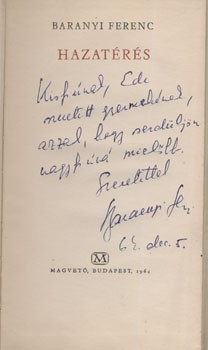 BARANYI FERENC
HAZATÉRÉS
Kisfiának, Ede
szeretettel
azzal, hogy serdüljön
nagyfiúvá mielőbb.
Szeretettel
Baranyi Feri
64. dec. 5.
M
MAGVETŐ, BUDAPEST, 1962